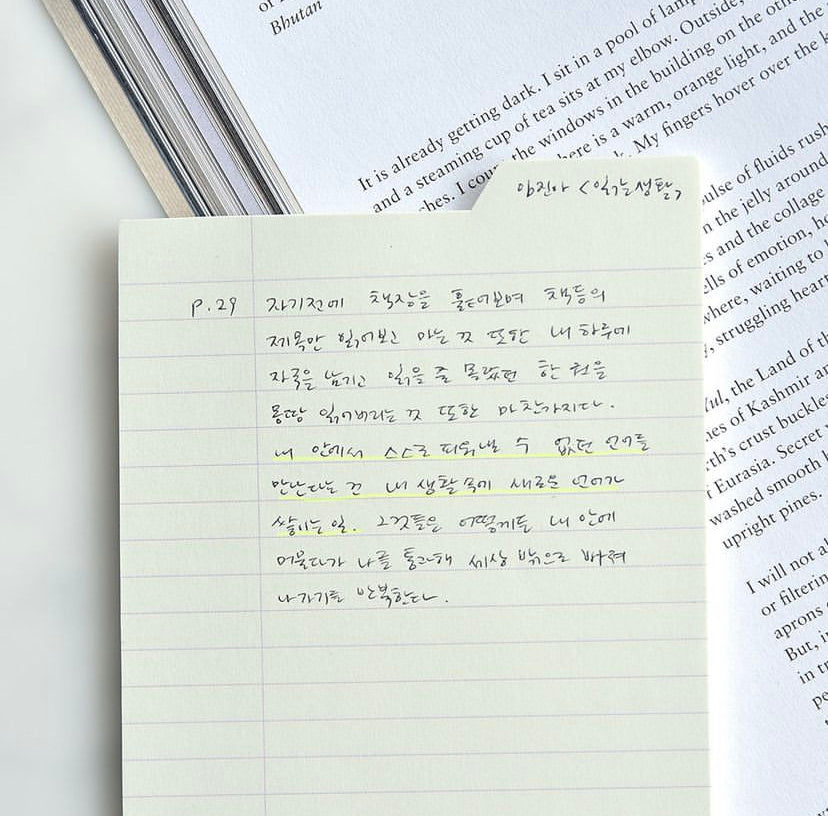 of
Bhutan
It is already getting dark. I sit in a pool of lam
and a steaming cup of tea sits at my elbow. Outside,
ches. I cou the windows in the building on the oth
here is a warm, orange light, and the
My fingers hover over the k
pulse of fluids rush
n the jelly around
s and the collage
ells of emotion, h
where, waiting to
, struggling heart
ful, the Land of th
nes of Kashmir a
th's crust buckle
f Eurasia. Secret
washed smooth
upright pines.
I will not a
or filterin
aprons
But, i
in t
pe
임진아 <읽는 생활>
p.29 자기전에 책장을 훑어보며 책등의
제목만 읽어보고 마는 것 또한 내 하루에
자국을 남기고 읽을 줄 몰랐던 한 권을
몽땅 읽어버리는 것 또한 마찬가지다.
내 안에서 스스로 피워낼 수 없던 언어를
만난다는 건 내 생활 속에 새로운 언어가
쌓이는 일. 그것들은 어떻게든 내 안에
머물다가 나를 통과해 세상 밖으로 빠져
나가기를 반복한다.